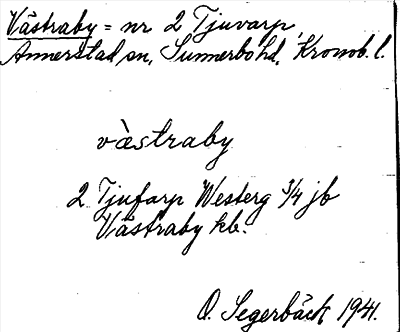 Västraby = nr 2 Tjuvarp,
Annerstad sn, Sunnerbo hd, Kronob. l.
vàstraby
2 Tjufarp Westerg 3/4 jb
Västraby kb.
O. Segerbäck 1941.